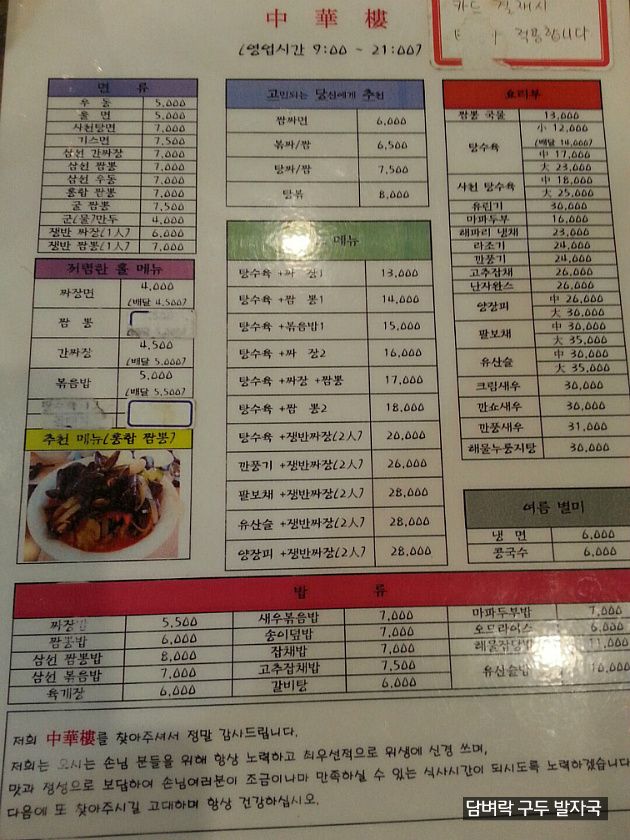 中華樓
(영업시간 9:00 ~ 21:00)
카드 결제시
면 류
우 동 5,000
울 면 5,000
사천탕면 7,000
기스면 7,500
삼선 간짜장 7,000
삼선 짬뽕 7,000
삼선 우동 7,000
홍합 짬뽕 7,000
굴 짬뽕 7,500
군(물)만두 4,000
쟁반 짜장(1人) 6,000
쟁반 짬뽕(1人) 7,000
저렴한 홀 메뉴
짜장면 4,000
(배달 4,500)
짬 뽕
간짜장 4,500
(배달 5,000)
볶음밥 5,000
(배달 5,500)
추천 메뉴(홍합 짬뽕)
고민되는 당신에게 추천
짬짜면 6,000
볶짜/짬 6,500
탕짜/짬 7,500
탕볶 8,000
메뉴
탕수육 +짜 장1 13,000
탕수육 +짬 뽕1 14,000
탕수육 +볶음밥1 15,000
탕수육 +짜 장2 16,000
탕수육 +짜장 +짬뽕 17,000
탕수육 +짬 뽕2 18,000
탕수육 +쟁반짜장(2人) 20,000
깐풍기 +쟁반짜장(2人) 26,000
팔보채 +쟁반짜장(2人) 28,000
유산슬 +쟁반짜장(2人) 28,000
양장피 +쟁반짜장(2人) 28,000
요리부
짬뽕 국물 13,000
탕수육 小 12,000
(배달 14,000)
中 17,000
大 23,000
사천 탕수육 中 18,000
大 25,000
유린기 30,000
마파두부 16,000
해파리 냉채 23,000
라조기 24,000
깐풍기 24,000
고추잡채 26,000
난자완스 26,000
양장피 中 26,000
大 30,000
팔보채 中 30,000
大 35,000
유산슬 中 30,000
大 35,000
크림새우 30,000
깐쇼새우 30,000
깐풍새우 31,000
해물누룽지탕 30,000
여름 별미
냉 면 6,000
콩국수 6,000
밥 류
짜장밥 5,500 새우볶음밥 7,000 마파두부밥 7,000
짬뽕밥 6,000 송이덮밥 7,000 오므라이스 6,000
삼선 짬뽕밥 8,000 잡채밥 7,000 해물잡탕밥 11,000
삼선 볶음밥 7,000 고추잡채밥 7,500 유산슬밥 10,000
육개장 6,000 갈비탕 6,000
저희 中華樓를 찾아주셔서 정말 감사드립니다.
저희는 오시는 손님 분들을 위해 항상 노력하고 최우선적으로 위생에 신경 쓰며,
맛과 정성으로 보답하여 손님여러분이 조금이나마 만족하실 수 있는 식사시간이 되시도록 노력하겠습니다
다음에 또 찾아주시길 고대하며 항상 건강하십시오.
담벼락 구두 발자국